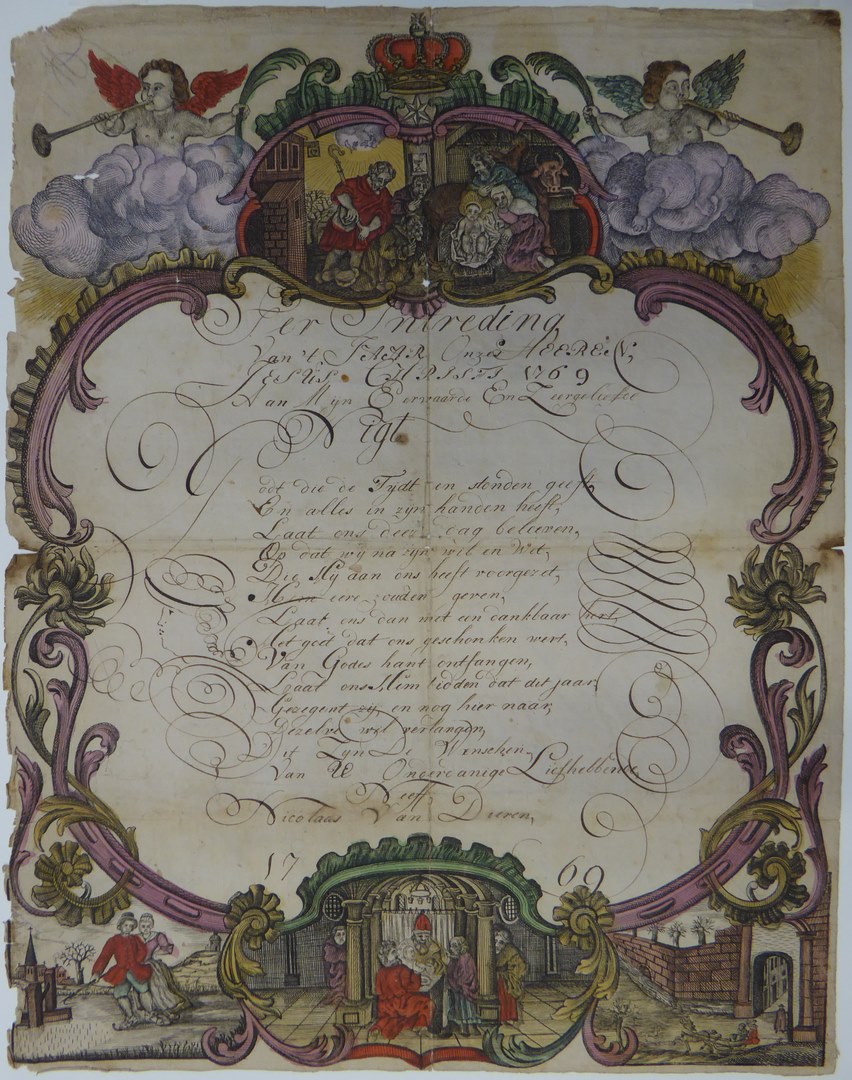 Ter Intreding
Van 't JAAR Onzes HEEREN,
JESUS CHRISTI 1769
Aan Mijn Eerwaarde En Zeergeliefde
Nigt
Godt die de Tydt en stonden geeft,
En alles in zyn handen heeft,
Laat ons deez' dag beleeven,
Op dat wij na zyn wil en Wet,
Die Hy aan ons heeft voorgezet,
eere zouden geven,
Laat ons dan met een dankbaar hert,
Het goet dat ons geschonken wert,
Van Godes hant ontfangen,
Laat ons Hem bidden dat dit jaar,
Gezegent zy, en nog hier naar,
Dezelve wyl verlangen,
Dit Zyn De Wenschen,
Van UE Onderdanige Liefhebbende
Neeff
Nicolaas Van Dieren,
17 69